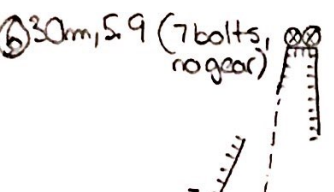 ⑥30m, 5.9 (7 bolts,
no gear)